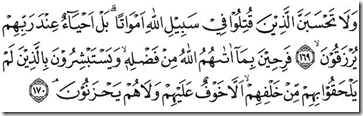 وَلَا تَحْسَبَنَّ الَّذِينَ قُتِلُوا فِي سَبِيلِ اللَّهِ أَمْوَاتًا ۚ بَلْ أَحْيَاءٌ عِندَ رَبِّهِمْ
يُرْزَقُونَ ﴿١٦٩﴾ فَرِحِينَ بِمَا آتَاهُمُ اللَّهُ مِن فَضْلِهِ وَيَسْتَبْشِرُونَ بِالَّذِينَ لَمْ
يَلْحَقُوا بِهِم مِّنْ خَلْفِهِمْ أَلَّا خَوْفٌ عَلَيْهِمْ وَلَا هُمْ يَحْزَنُونَ ﴿١٧٠﴾